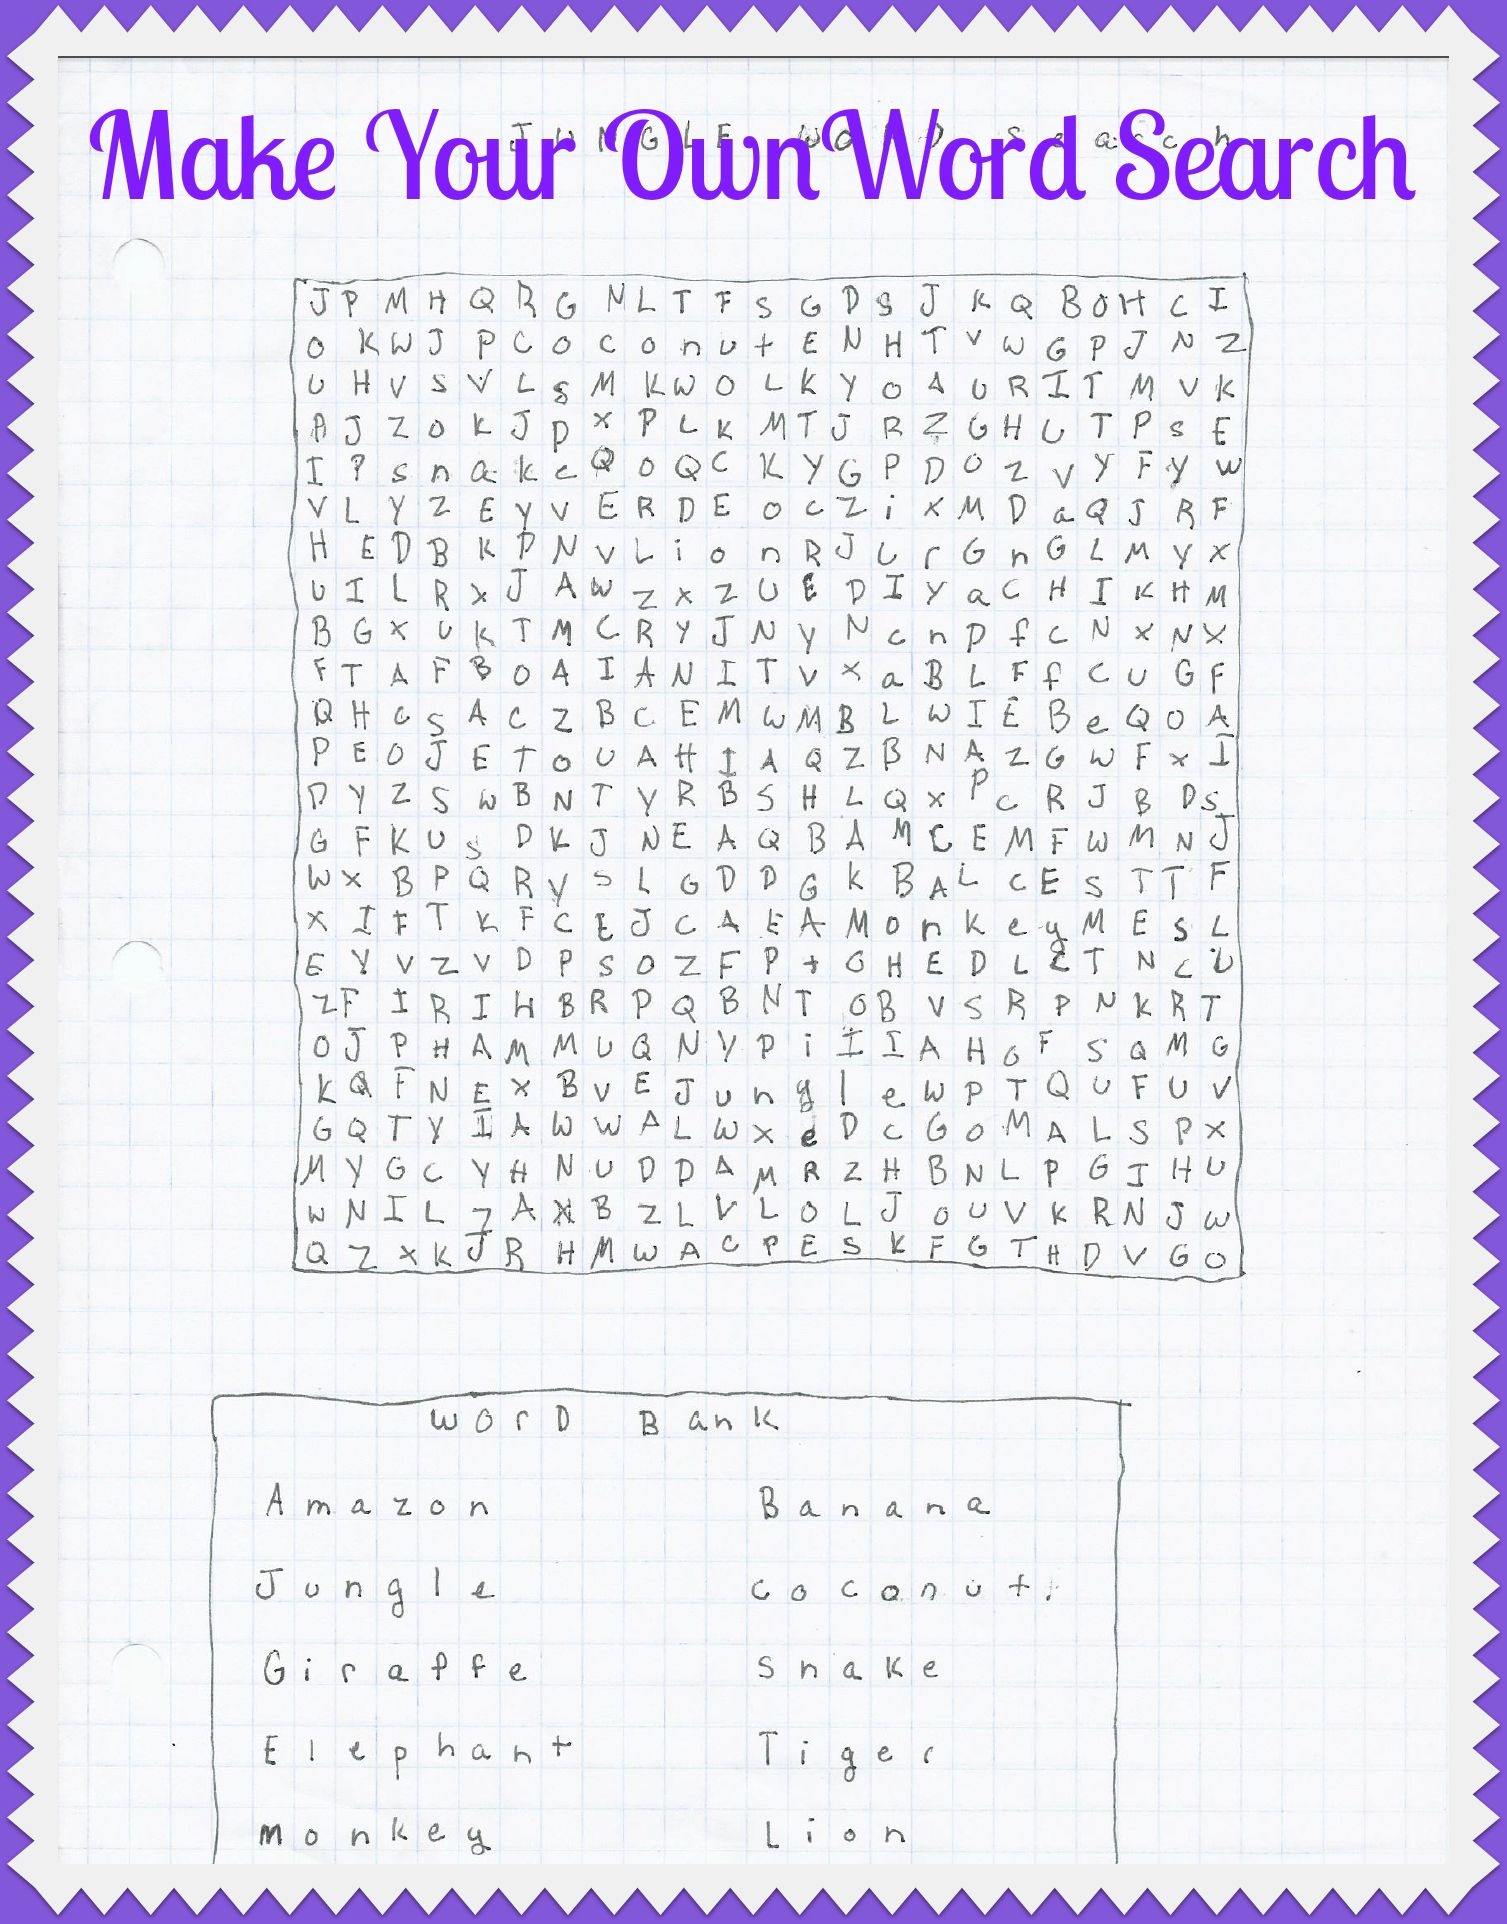 Make Your Own Word Search
JUNGLE WORD Search
J P M H Q R G N L T F S G D S J K Q B O H C I
O K W J P C o c o n u t E N H T V W G P J N Z
U H V S V L S M K W O L K Y O A U R I T M V K
A J Z O K J P X P L K M T J R Z G H U T P S E
I P s n a k e Q O Q C K Y G P D O Z V Y F Y W
V L Y Z E Y V E R D E O C Z i X M D a Q J R F
H E D B K P N V L i o n R J U r G n G L M Y X
U I L R X J A W Z X Z U E D I Y a C H I K H M
B G X U K T M C R Y J N Y N C n P f C N X N X
F T A F B O A I A N I T V X a B L F f C U G F
Q H C S A C Z B C E M W M B L W I E B e Q O A
P E O J E T O U A H I A Q Z B N A Z G W F X I
D Y Z S W B N T Y R B S H L Q X P C R J B D S
G F K U S D K J N E A Q B A M C E M F W M N J
W X B P Q R Y S L G D D G K B A L C E S T T F
X I F T K F C E J C A E A M o n k e y M E S L
E Y V Z V D P S O Z F P t O H E D L E T N C U
Z F I R I H B R P Q B N T O B V S R P N K R T
O J P H A M M U Q N Y P i I I A H O F S Q M G
K Q F N E X B V E J u n g l e W P T Q U F U V
G Q T Y I A W W A L W X e D C G O M A L S P X
M Y G C Y H N U D D A M R Z H B N L P G I H U
W N I L Z A X B Z L V L O L J O U V K R N J W
Q Z X K J R H M W A C P E S K F G T H D V G O
WOrD Bank
Amazon Banana
Jungle coconut
Giraffe Snake
Elephant Tiger
Monkey Lion